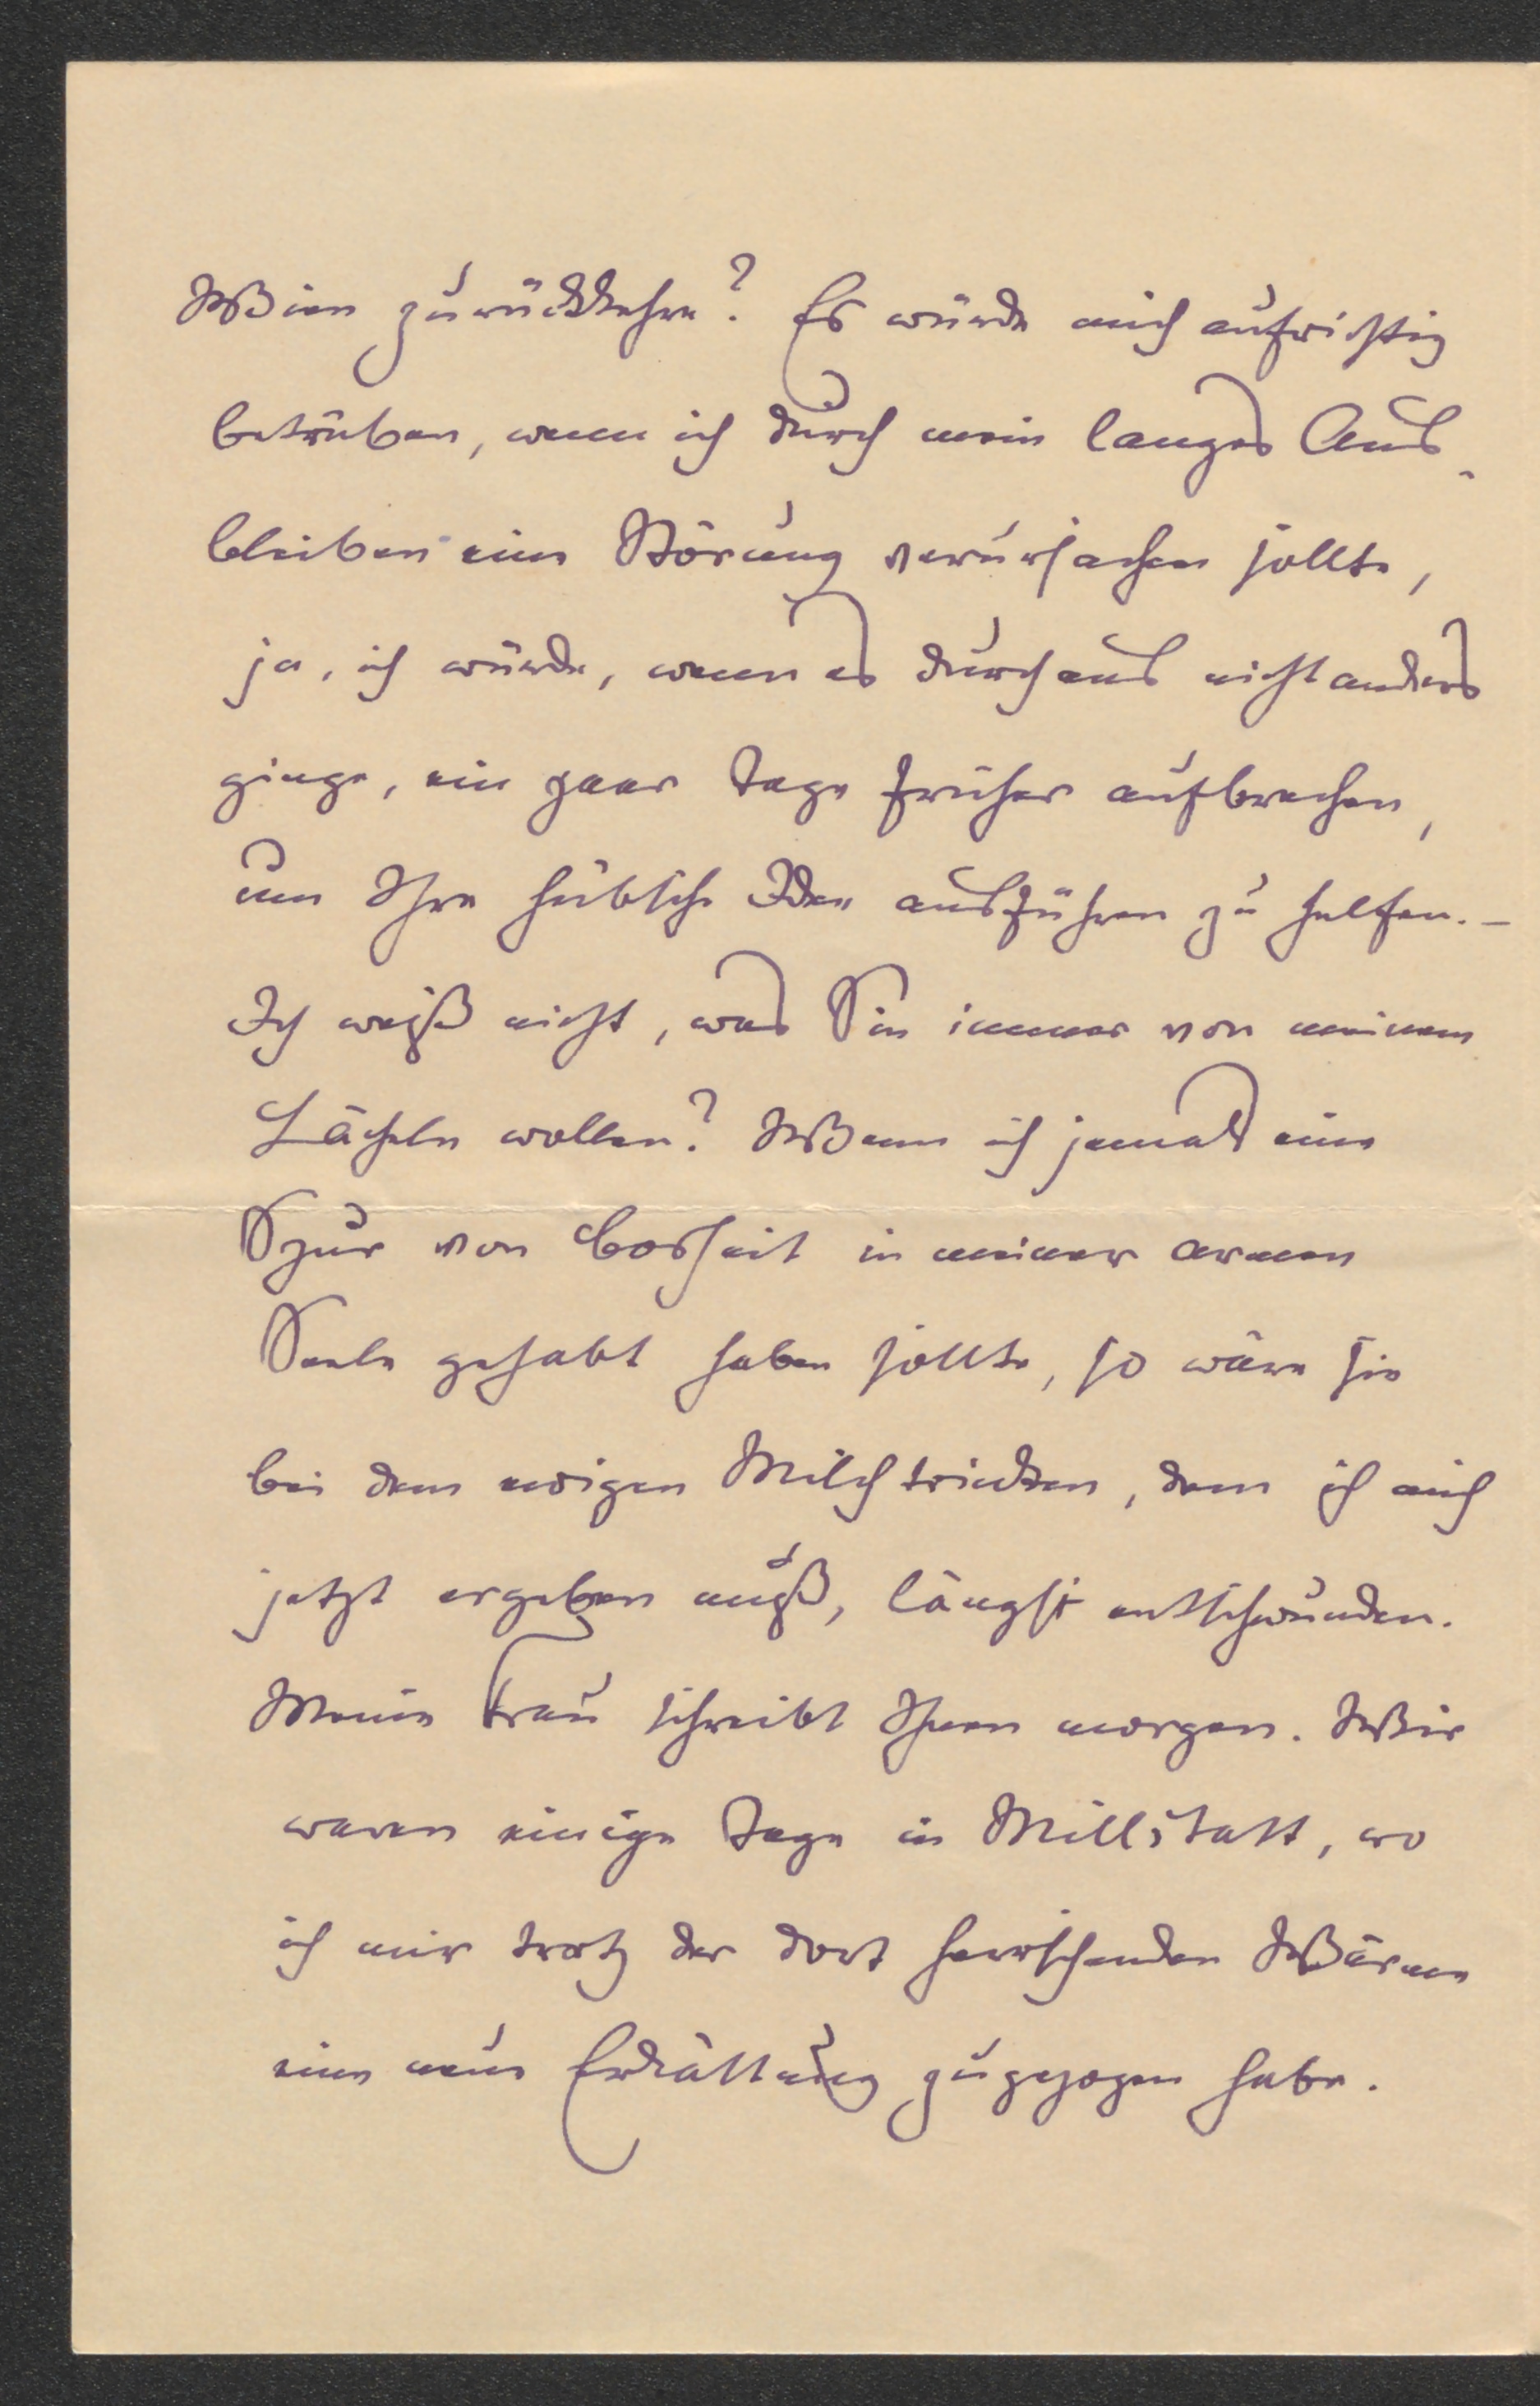 Wien zurückkehre? Es würde mich aufrichtig
betrüben, wenn ich durch mein langes Aus-
bleiben eine Störung verursachen sollte,
ja, ich würde, wenn es durchaus nicht anders
ginge, ein paar Tage früher aufbrechen,
um Ihre hübsche Idee ausführen zu helfen. –
Ich weiß nicht, was Sie immer von meinem
Lächeln wollen? Wenn ich jemals eine
Spur von Bosheit in meiner armen
Seele gehabt haben sollte, so wäre sie
bei dem ewigen Milchtrinken, dem ich mich
jetzt ergeben muß, längst entschwunden.
Meine Frau schreibt Ihnen morgen. Wir
waren einige Tage in Millstatt, wo
ich mir trotz der dort herrschenden Wärme
eine neue Erkältung zugezogen habe.